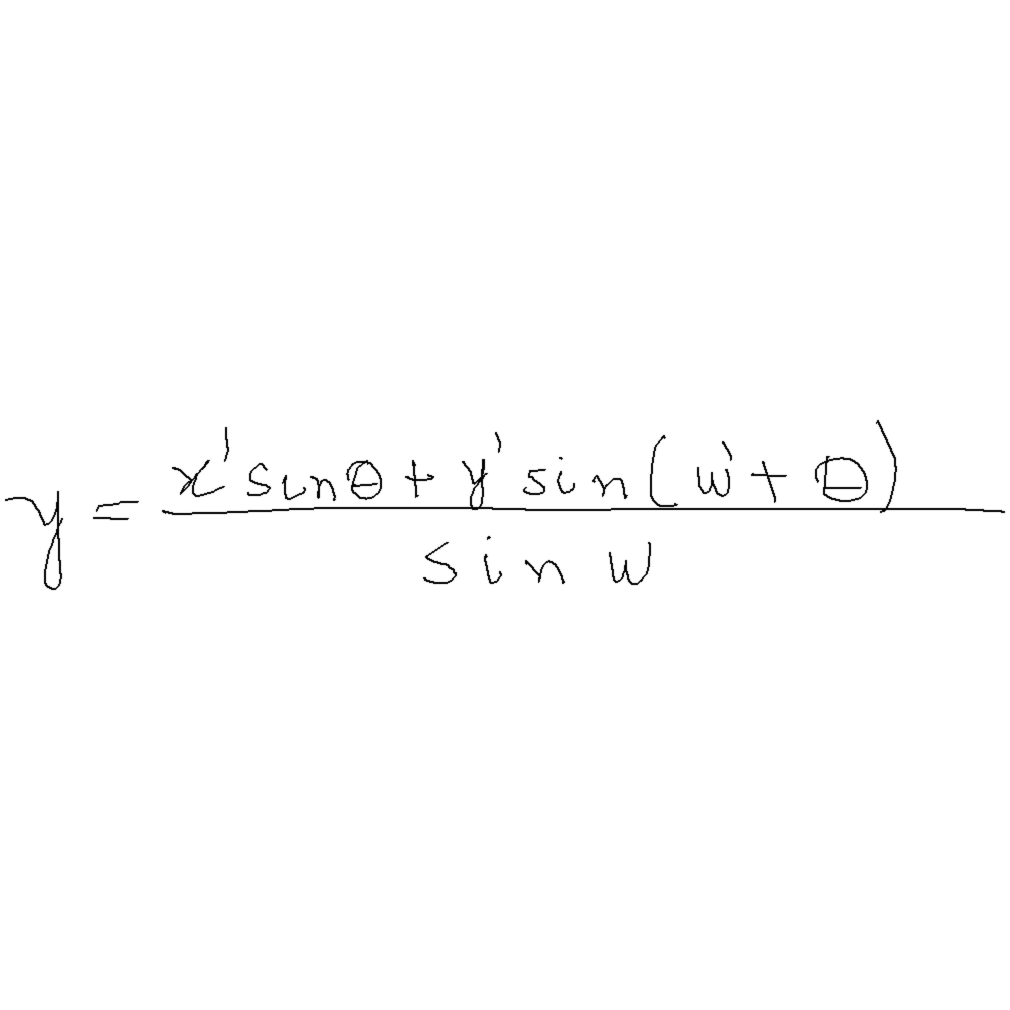 y = \frac{x' sin θ + y' sin (w' + θ)}{sin w}